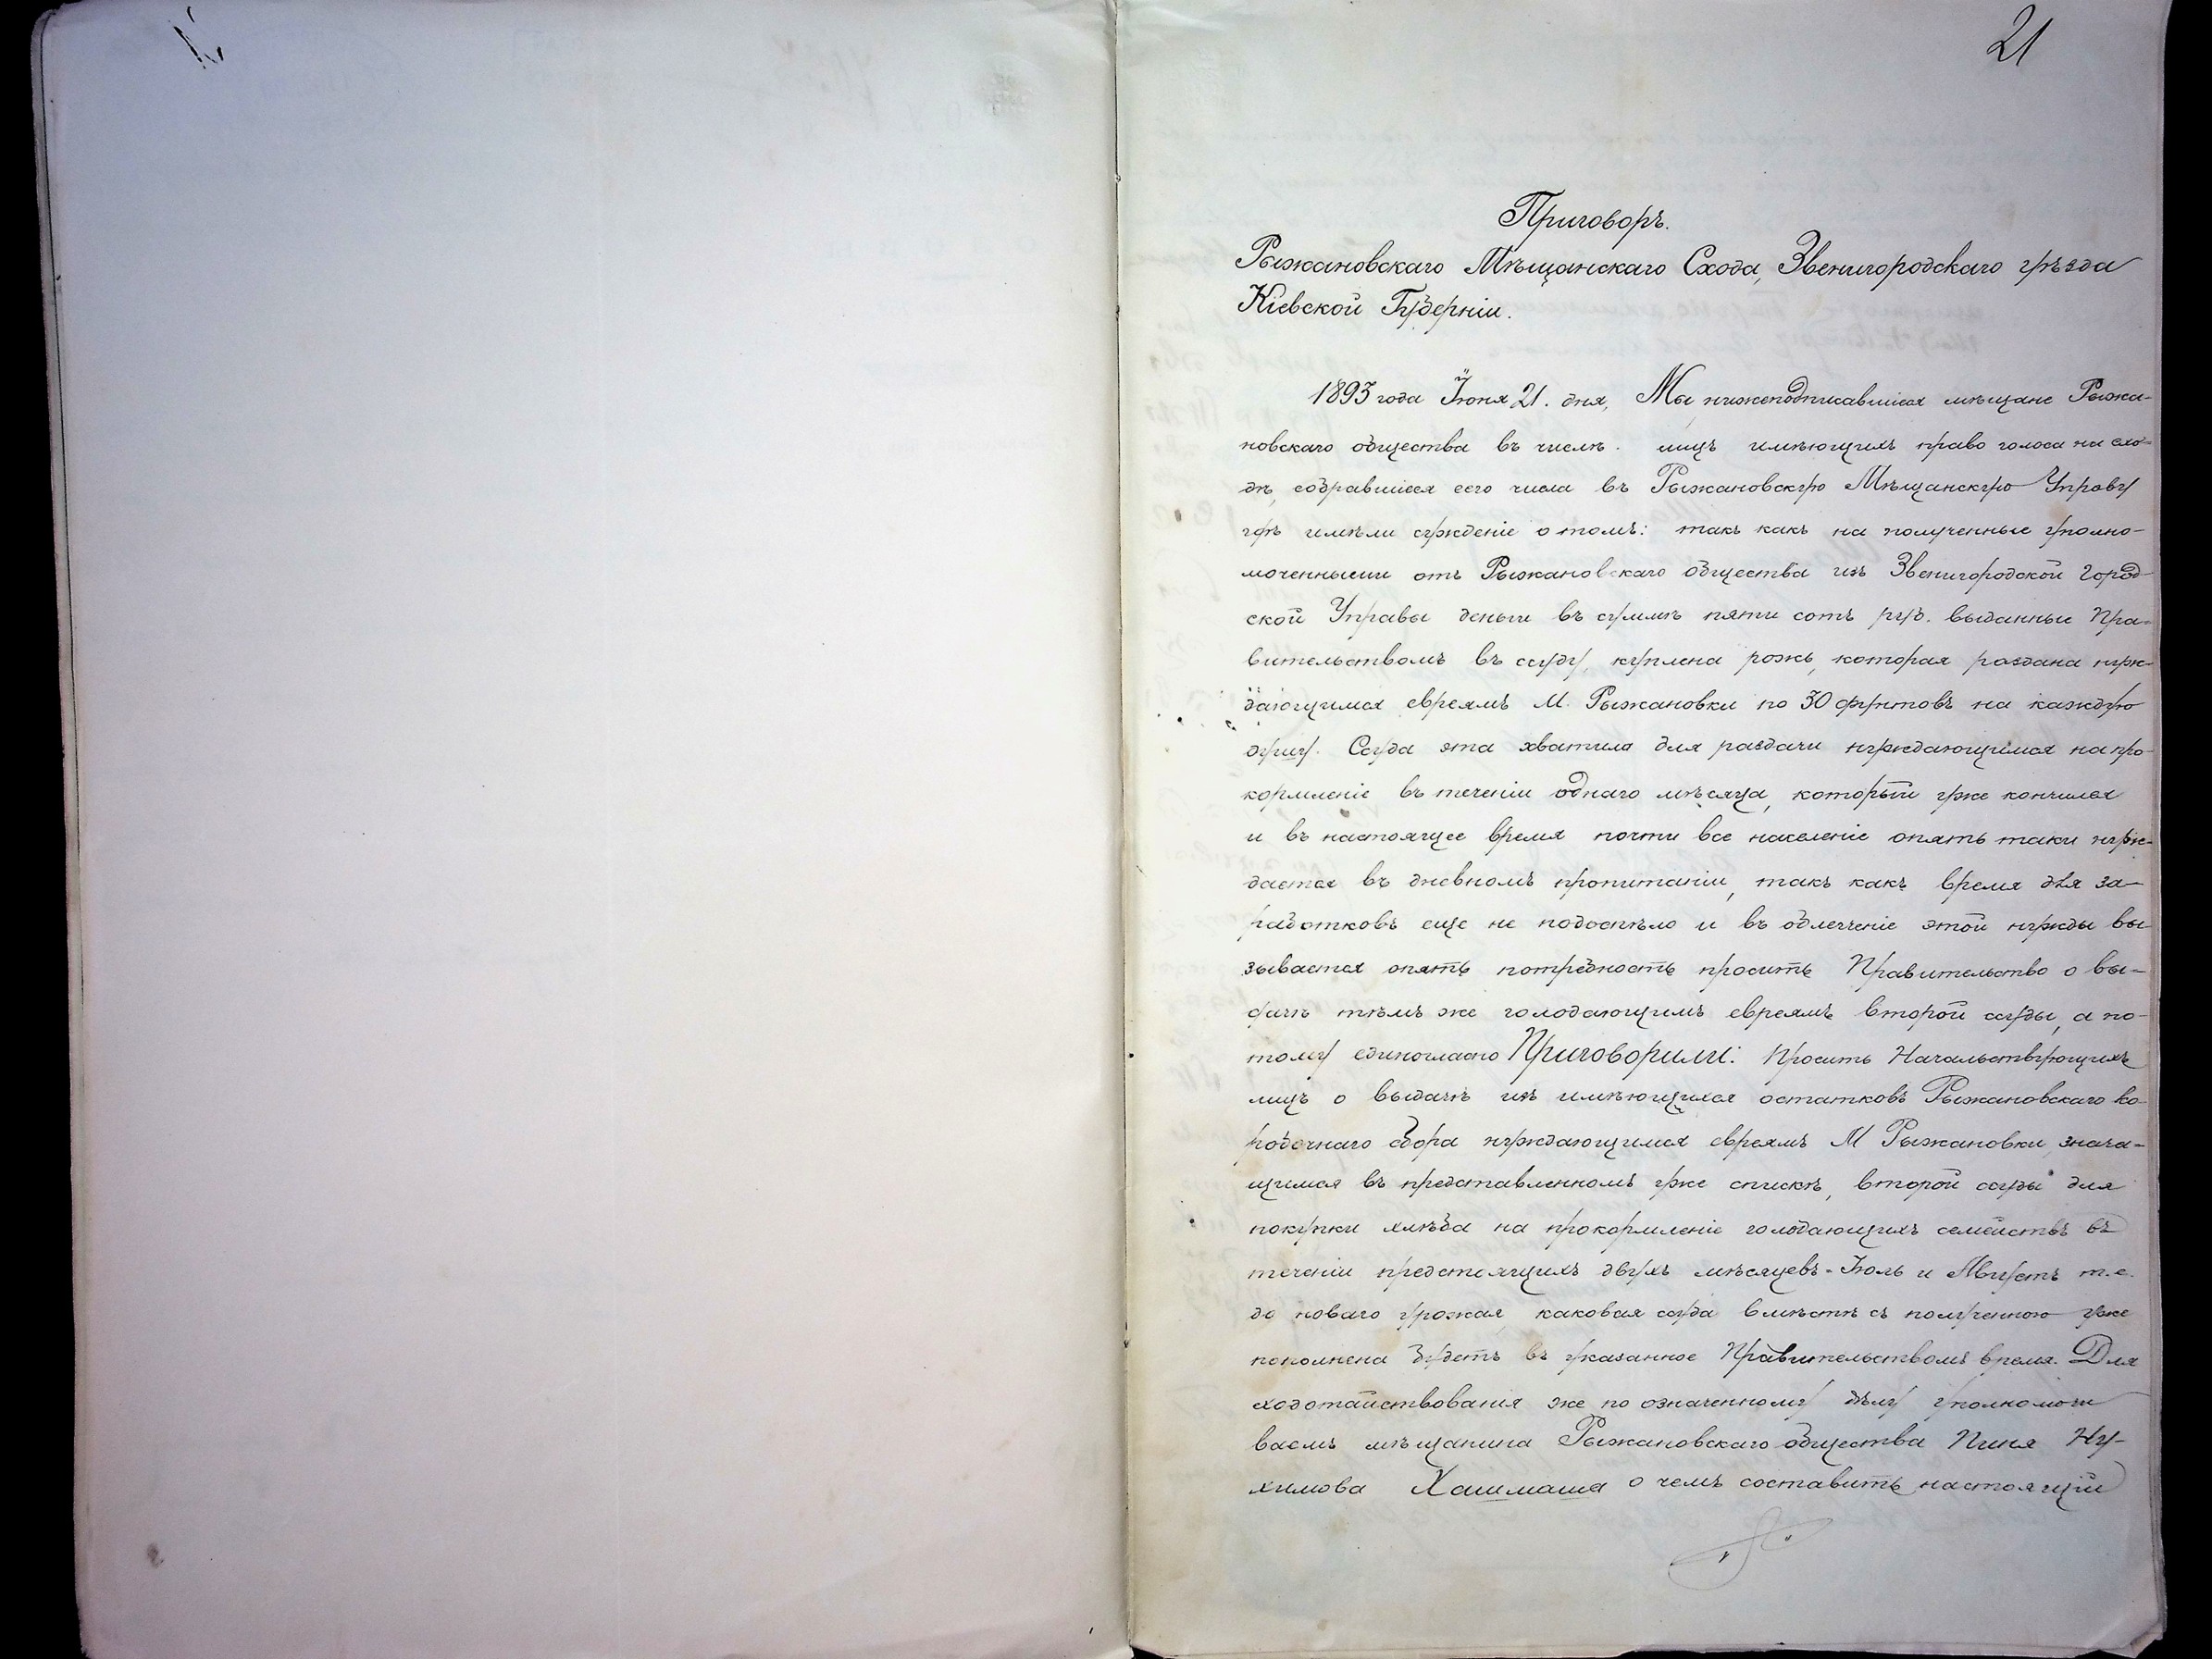 21
Приговоръ.
Рыжановскаго Мѣщанскаго Схода, Звенигородскаго уѣзда
Кіевской Губерніи.
1893 года Іюня 21. дня, Мы нижеподписавшіеся мѣщане Рыжа-
новскаго общества въ числѣ . лицъ имѣющихъ право голоса на схо-
дѣ, собравшіеся сего числа въ Рыжановскую Мѣщанскую Управу
гдѣ имѣли сужденіе о томъ: такъ какъ на полученные уполно-
моченными отъ Рыжановскаго общества изъ Звенигородской Город-
ской Управы деньги въ суммѣ пяти сотъ руб. выданные Пра-
вительствомъ въ ссуду, куплена рожь, которая раздана нуж-
дающимся евреямъ М. Рыжановки по 30 фунтовъ на каждую
душу. Ссуда эта хватила для раздачи нуждающимся на про-
кормленіе въ теченіи однаго мѣсяца, который уже кончился
и въ настоящее время почти все населеніе опять таки нуж-
дается въ дневномъ пропитаніи, такъ какъ время для за-
работковъ еще не подоспѣло и въ облегченіе этой нужды вы-
зывается опять потребность просить Правительство о вы-
дачѣ тѣмъ же голодающимъ евреямъ второй ссуды, а по-
тому единогласно Приговорили: Просить Начальствующихъ
лицъ о выдачѣ изъ имѣющихся остатковъ Рыжановскаго ко-
робочнаго сбора нуждающимся евреямъ М Рыжановки, знача-
щимся въ представленномъ уже спискѣ, второй ссуды для
покупки хлѣба на прокормленіе голодающихъ семействъ въ
теченіи предстоящихъ двухъ мѣсяцевъ - Іюль и Августъ т.е.
до новаго урожая, каковая ссуда вмѣстѣ съ полученною уже
пополнена будетъ въ указанное Правительствомъ время. Для
ходотайствованія же по означенному дѣлу уполномочи
ваемъ мѣщанина Рыжановскаго общества Пиня Ну-
химова Хашмаша о чемъ составить настоящій